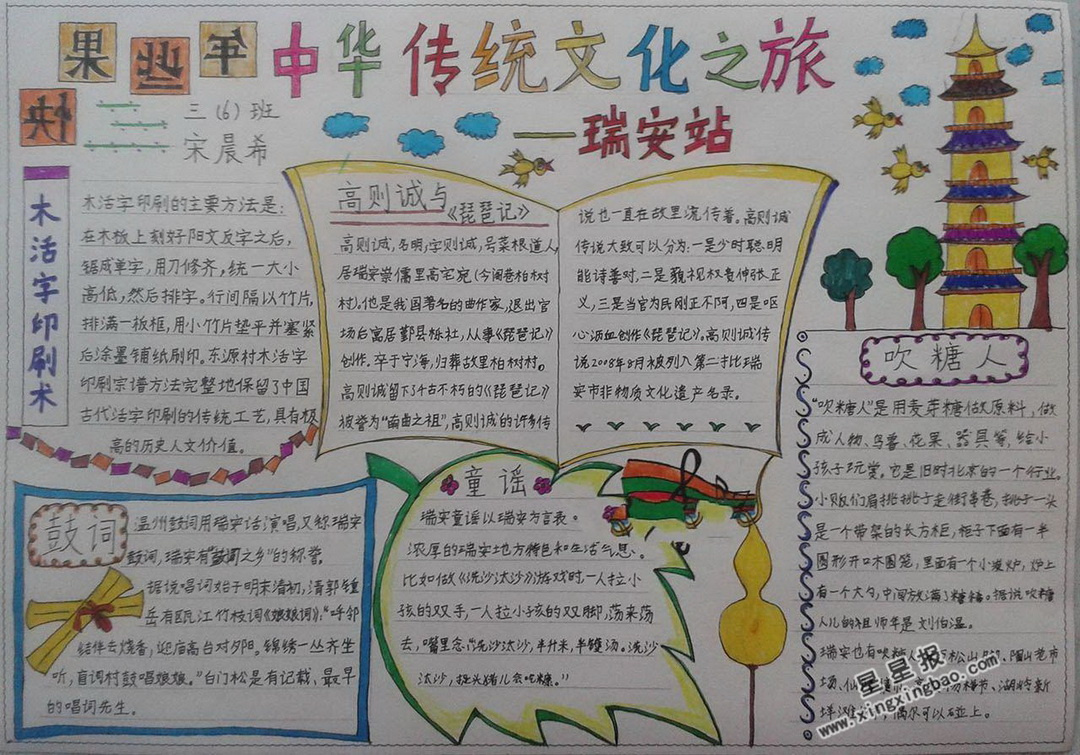 中华传统文化之旅
——瑞安站
三(6)班
宋晨希
木活字印刷术
木活字印刷的主要方法是:
在木板上刻好阳文反字之后,
锯成单字,用刀修齐,统一大小
高低,然后排字。行间隔以竹片,
排满一板框,用小竹片垫平并塞紧
后涂墨铺纸刷印。东源村木活字
印刷宗谱方法完整地保留了中国
古代活字印刷的传统工艺,具有极
高的历史人文价值。
高则诚与
《琵琶记》
高则诚,名明,字则诚,号菜根道人,
居瑞安崇儒里高宅宛(今阁巷柏树
村)。他是我国著名的曲作家,退出官
场后寓居鄞县栎社,从事《琵琶记》
创作。卒于宁海,归葬故里柏树村。
高则诚留下千古不朽的《琵琶记》
被誉为“南曲之祖”,高则诚的许多传
说也一直在故里流传着。高则诚
传说大致可以分为:一是少时聪明
能诗善对,二是藐视权贵伸张正
义,三是当官为民刚正不阿,四是呕
心沥血创作《琵琶记》。高则诚传
说2008年8月被列入第二批瑞
安市非物质文化遗产名录。
吹糖人
“吹糖人”是用麦芽糖做原料,做
成人物、鸟兽、花果、器具等,给小
孩子玩赏。它是旧时北京的一个行业。
小贩们肩挑挑子走街串巷,挑子一头
是一个带架的长方柜,柜子下面有一半
圆形开口木圆笼,里面有一个小煤炉,炉上
有一个大勺,中间放满了糖稀。据说吹糖
人儿的祖师爷是刘伯温。
瑞安也有吹糖
松山
市
场、仙
节、湖岭新
偶尔可以碰上。
鼓词
温州鼓词用瑞安话演唱,又称瑞安
鼓词,瑞安有“鼓词之乡”的称誉。
据说唱词始于明末清初,清郭钟
岳有瓯江竹枝词《娘娘词》:“呼邻
结伴去烧香,迎庙高台对夕阳。锦绣一丛齐坐
听,盲词村鼓唱娘娘。”白门松是有记载、最早
的唱词先生。
童谣
瑞安童谣以瑞安方言表。
浓厚的瑞安地方特色和生活气息。
比如做《洗沙汰沙》游戏时,一人拉小
孩的双手,一人拉小孩的双脚,荡来荡
去,嘴里念:“洗沙汰沙,半升米,半镬汤。洗沙
汰沙,
星星报
www.xingxingbao.com